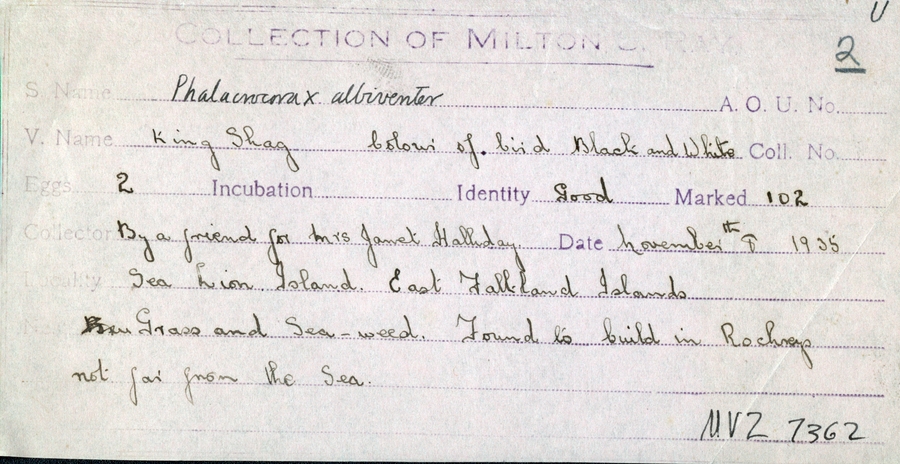 U
COLLECTION OF MILTON S. RAY
2
S. Name Phalacrocorax albiventer A. O. U. No.
V. Name King Shag Colour of. bird Black and White Coll. No.
Eggs 2 Incubation Identity Good Marked 102
Collector By a friend for Mrs Janet Halliday. Date November 8th 1935
Locality Sea Lion Island. East Falkland Islands
Nest Grass and Sea-weed. Found to build in
not far from the Sea.
MVZ 7362